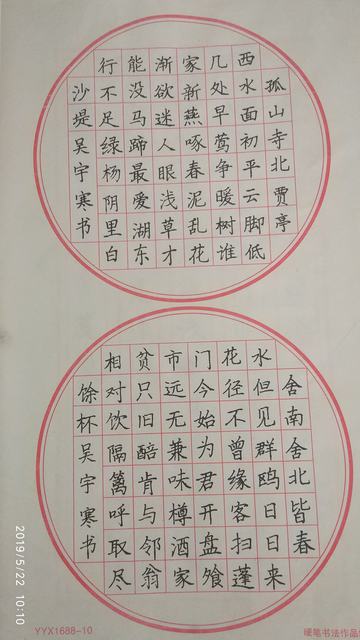 孤山寺北贾亭
西水面初平云脚低
几处早莺争暖树谁
家新燕啄春泥乱花
渐欲迷人眼浅草才
能没马蹄最爱湖东
行不足绿杨阴里白
沙堤吴宇寒书
舍南舍北皆春
水但见群鸥日日来
花径不曾缘客扫蓬
门今始为君开盘飧
市远无兼味樽酒家
贫只旧醅肯与邻翁
相对饮隔篱呼取尽
馀杯吴宇寒书
YYX1688-10
硬笔书法作品
2019/5/22 10:10